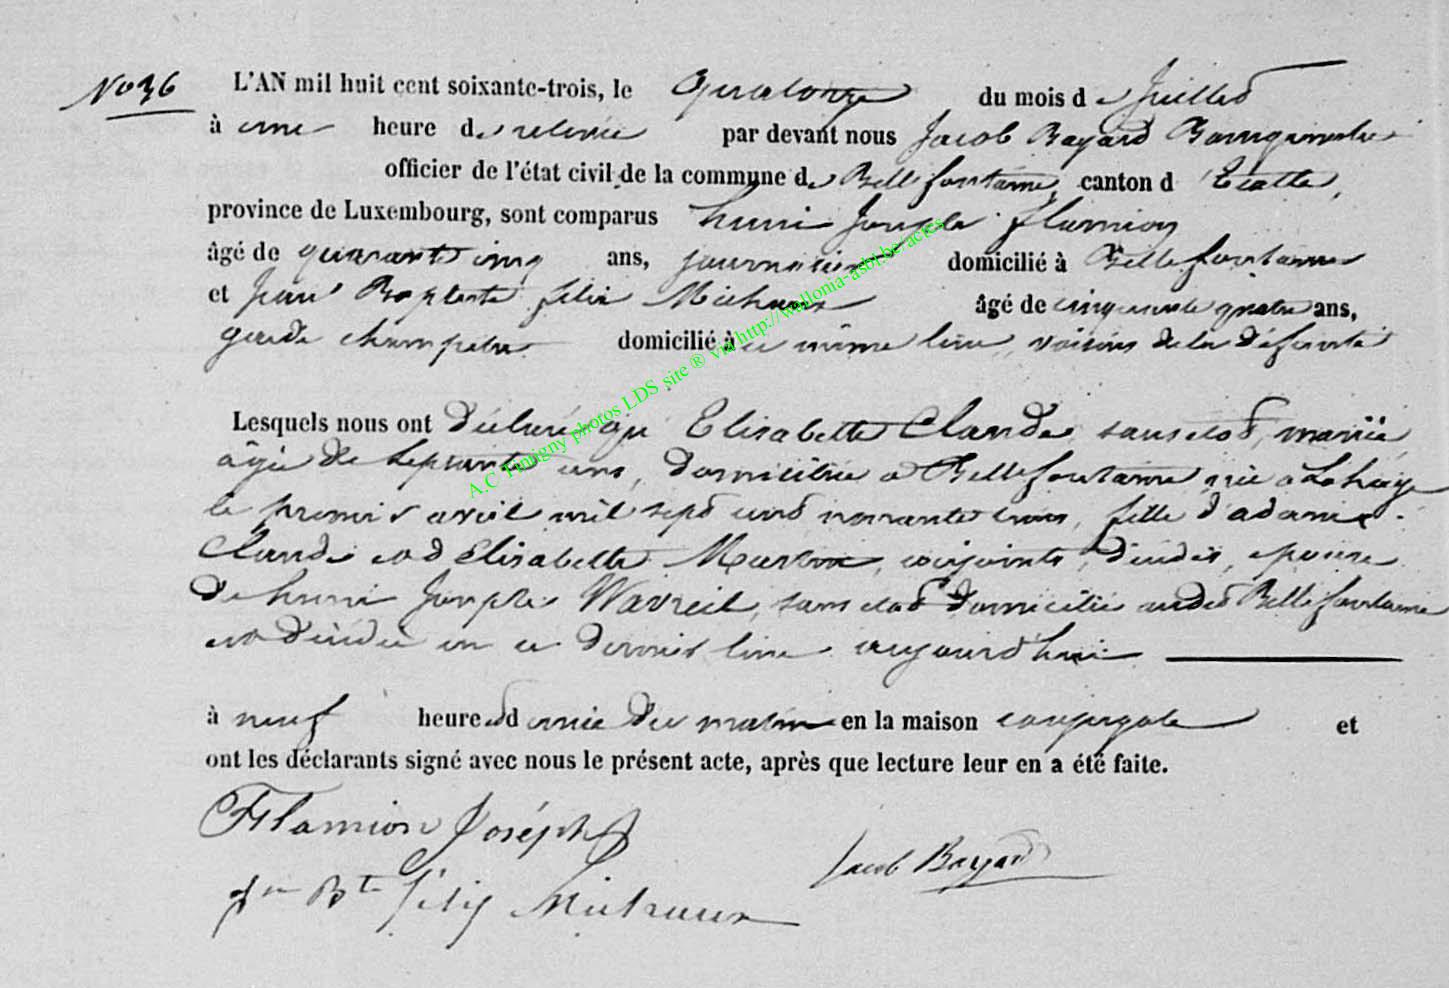 No 36
L'AN mil huit cent soixante-trois, le Quatorze du mois de Juillet
à une heure de relevée par devant nous Jacob Bayard Bourgmestre
officier de l'état civil de la commune de Bellefontaine, canton d'Etalle,
province de Luxembourg, sont comparus henri Joseph flamion
âgé de quarante cinq ans, journalier domicilié à Bellefontaine
et Jean Baptiste felix Michaux âgé de cinquante quatre ans,
garde champetre domicilié à ce même lieu, voisins de la défunte
Lesquels nous ont déclaré qu' Elisabette Claude, sans etat, mariée,
âgée de septante ans, domiciliée a Bellefontaine, née a Lahage
le premier avril mil sept cent nonante trois, fille d'adam
Claude et d'Elisabette Martin, conjoints, décédés, epouse
de henri Joseph Wavreil, sans etat domicilié audit Bellefontaine
est décédée en ce dernier lieu aujourd'hui
à neuf heures et demie du matin en la maison conjugale et
ont les déclarants signé avec nous le présent acte, après que lecture leur en a été faite.
Flamion Joséph
Jn Bte félix Michaux
Jacob Bayard
A.C Tintigny photos LDS site ® via http://wallonia-asbl.be/actes